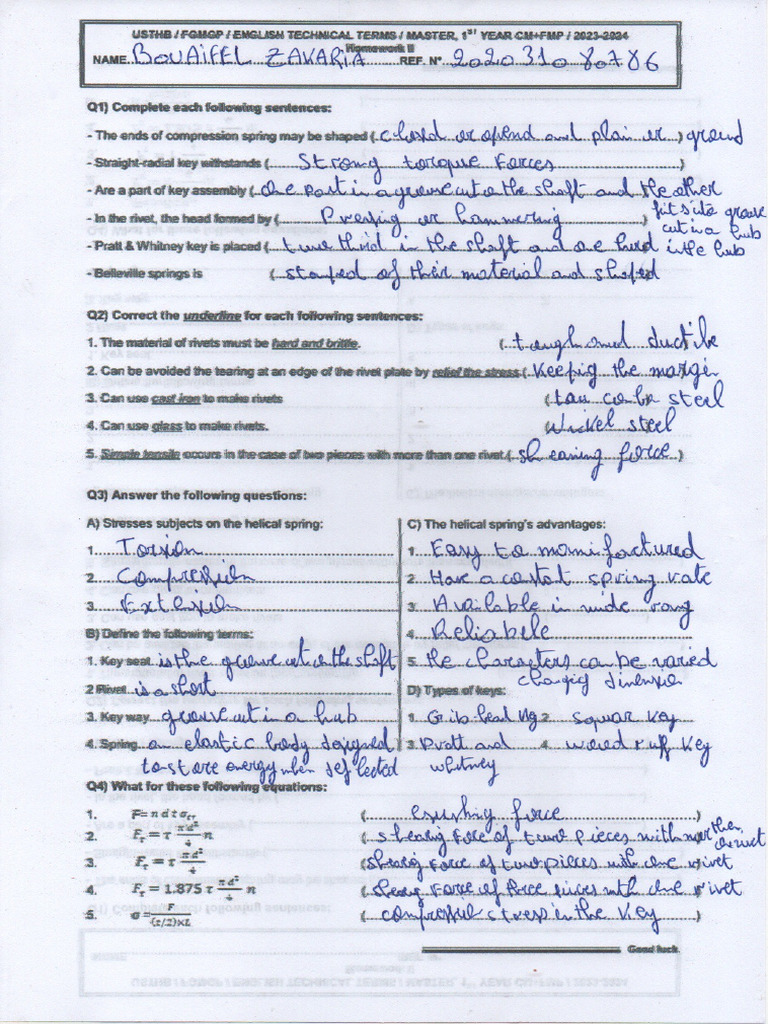 USTHB / FGMGP / ENGLISH TECHNICAL TERMS / MASTER, 1ST YEAR CM+FMP / 2023-2024
Homework II
NAME BOUAIFEL ZAKARIA REF. N° 202031080786
Q1) Complete each following sentences:
- The ends of compression spring may be shaped ( closed or opend and plain or ) ground
- Straight-radial key withstands ( Strong torque Forces )
- Are a part of key assembly ( one part in a groove cut o the shaft and the other
fits ito groove
cut in a hub
- In the rivet, the head formed by ( Pressing or hammering )
- Pratt & Whitney key is placed ( two third in the shaft and one third
in the hub
- Belleville springs is ( stamped of their material and shaped
Q2) Correct the underline for each following sentences:
1. The material of rivets must be hard and brittle. ( tough and ductibe
2. Can be avoided the tearing at an edge of the rivet plate by relief the stress ( Keeping the margin
3. Can use cast iron to make rivets ( steel
4. Can use glass to make rivets. ( Nickel steel
5. Simple tensile occurs in the case of two pieces with more than one rivet ( shearing force )
Q3) Answer the following questions:
A) Stresses subjects on the helical spring:
1. Torsion
2. Compression
3. Extension
B) Define the following terms:
1. Key seat is the groove cut on the shaft
2 Rivet is a short
3. Key way groove cut in a hub
4. Spring an elastic body designed
to store energy when deflected
C) The helical spring's advantages:
1. Easy to manifactured
2. Have a costant spring rate
3. Available in wide rang
4. Reliabele
5. the characters can be varied
changig dimension
D) Types of keys:
1. Grib-head 2. squar Key
3. Pratt and 4. wood ruff Key
whitney
Q4) What for these following equations:
1. F= n d t σcr ( crushing force )
2. Fτ = τ πd²/4 n ( shearing Force of two pieces with
3. Fτ = τ πd²/4 (shearing Force of two pieces with one rivet
4. Fτ = 1.875 τ πd²/4 n ( Force of pieces with one rivet
5. σ = F/(t/2)×L ( stress in the Key )
Good luck